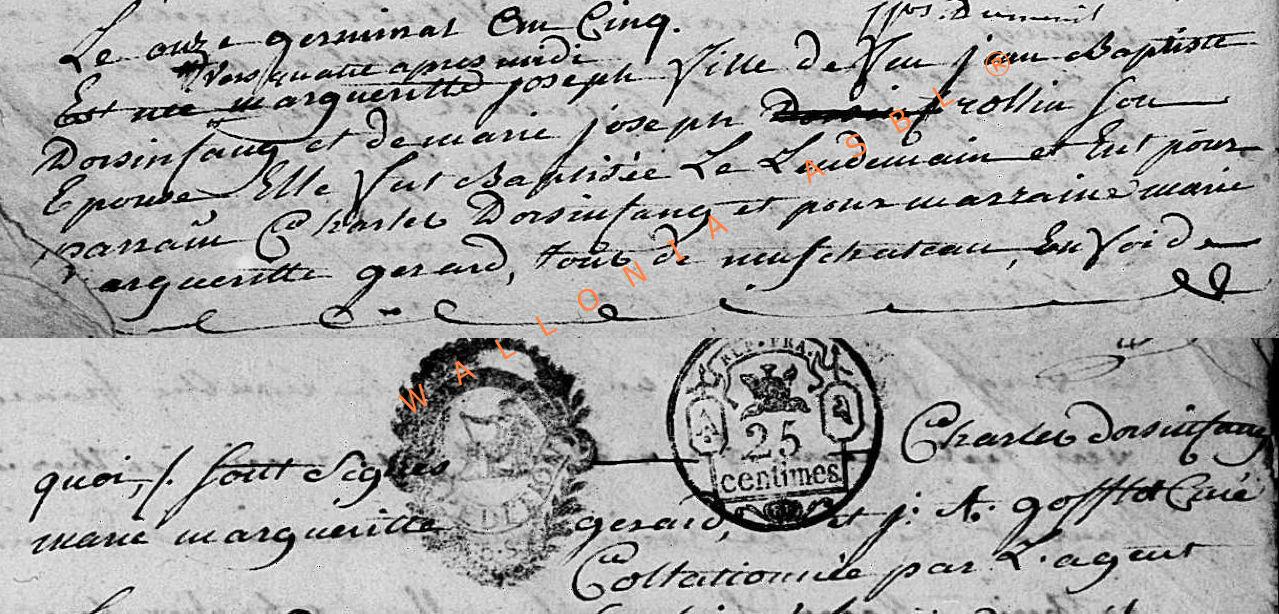 Le onze germinal Em Cinq.
Vers quatre apres midi
Est née margueritte joseph fille de feu jean Baptiste
Dorsinfang et de marie joseph rollin son
Epouse Elle fut Baptisée Le Lendemain et Eut pour
parrain Charles Dorsinfang et pour marraine marie
margueritte gerard, tous de neufchateau, En foi de
WALLONIA ASBL ®
REP. FRA.
25
centimes
quoi, /. sont Signés Charles dorsinfang
marie margueritte gerard, et j. A. gofflot Curé
Collationnée par L'agent